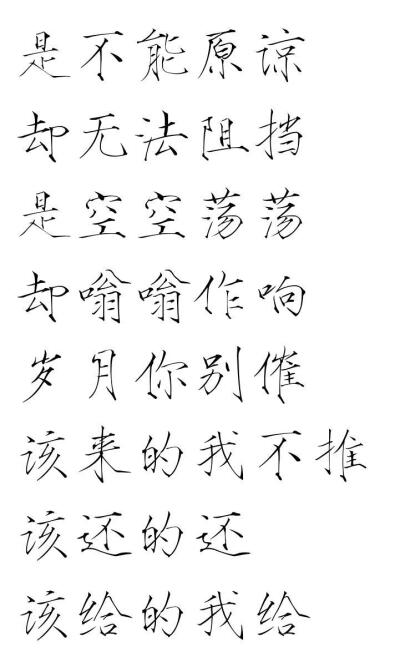 是不能原谅
却无法阻挡
是空空荡荡
却嗡嗡作响
岁月你别催
该来的我不推
该还的还
该给的我给